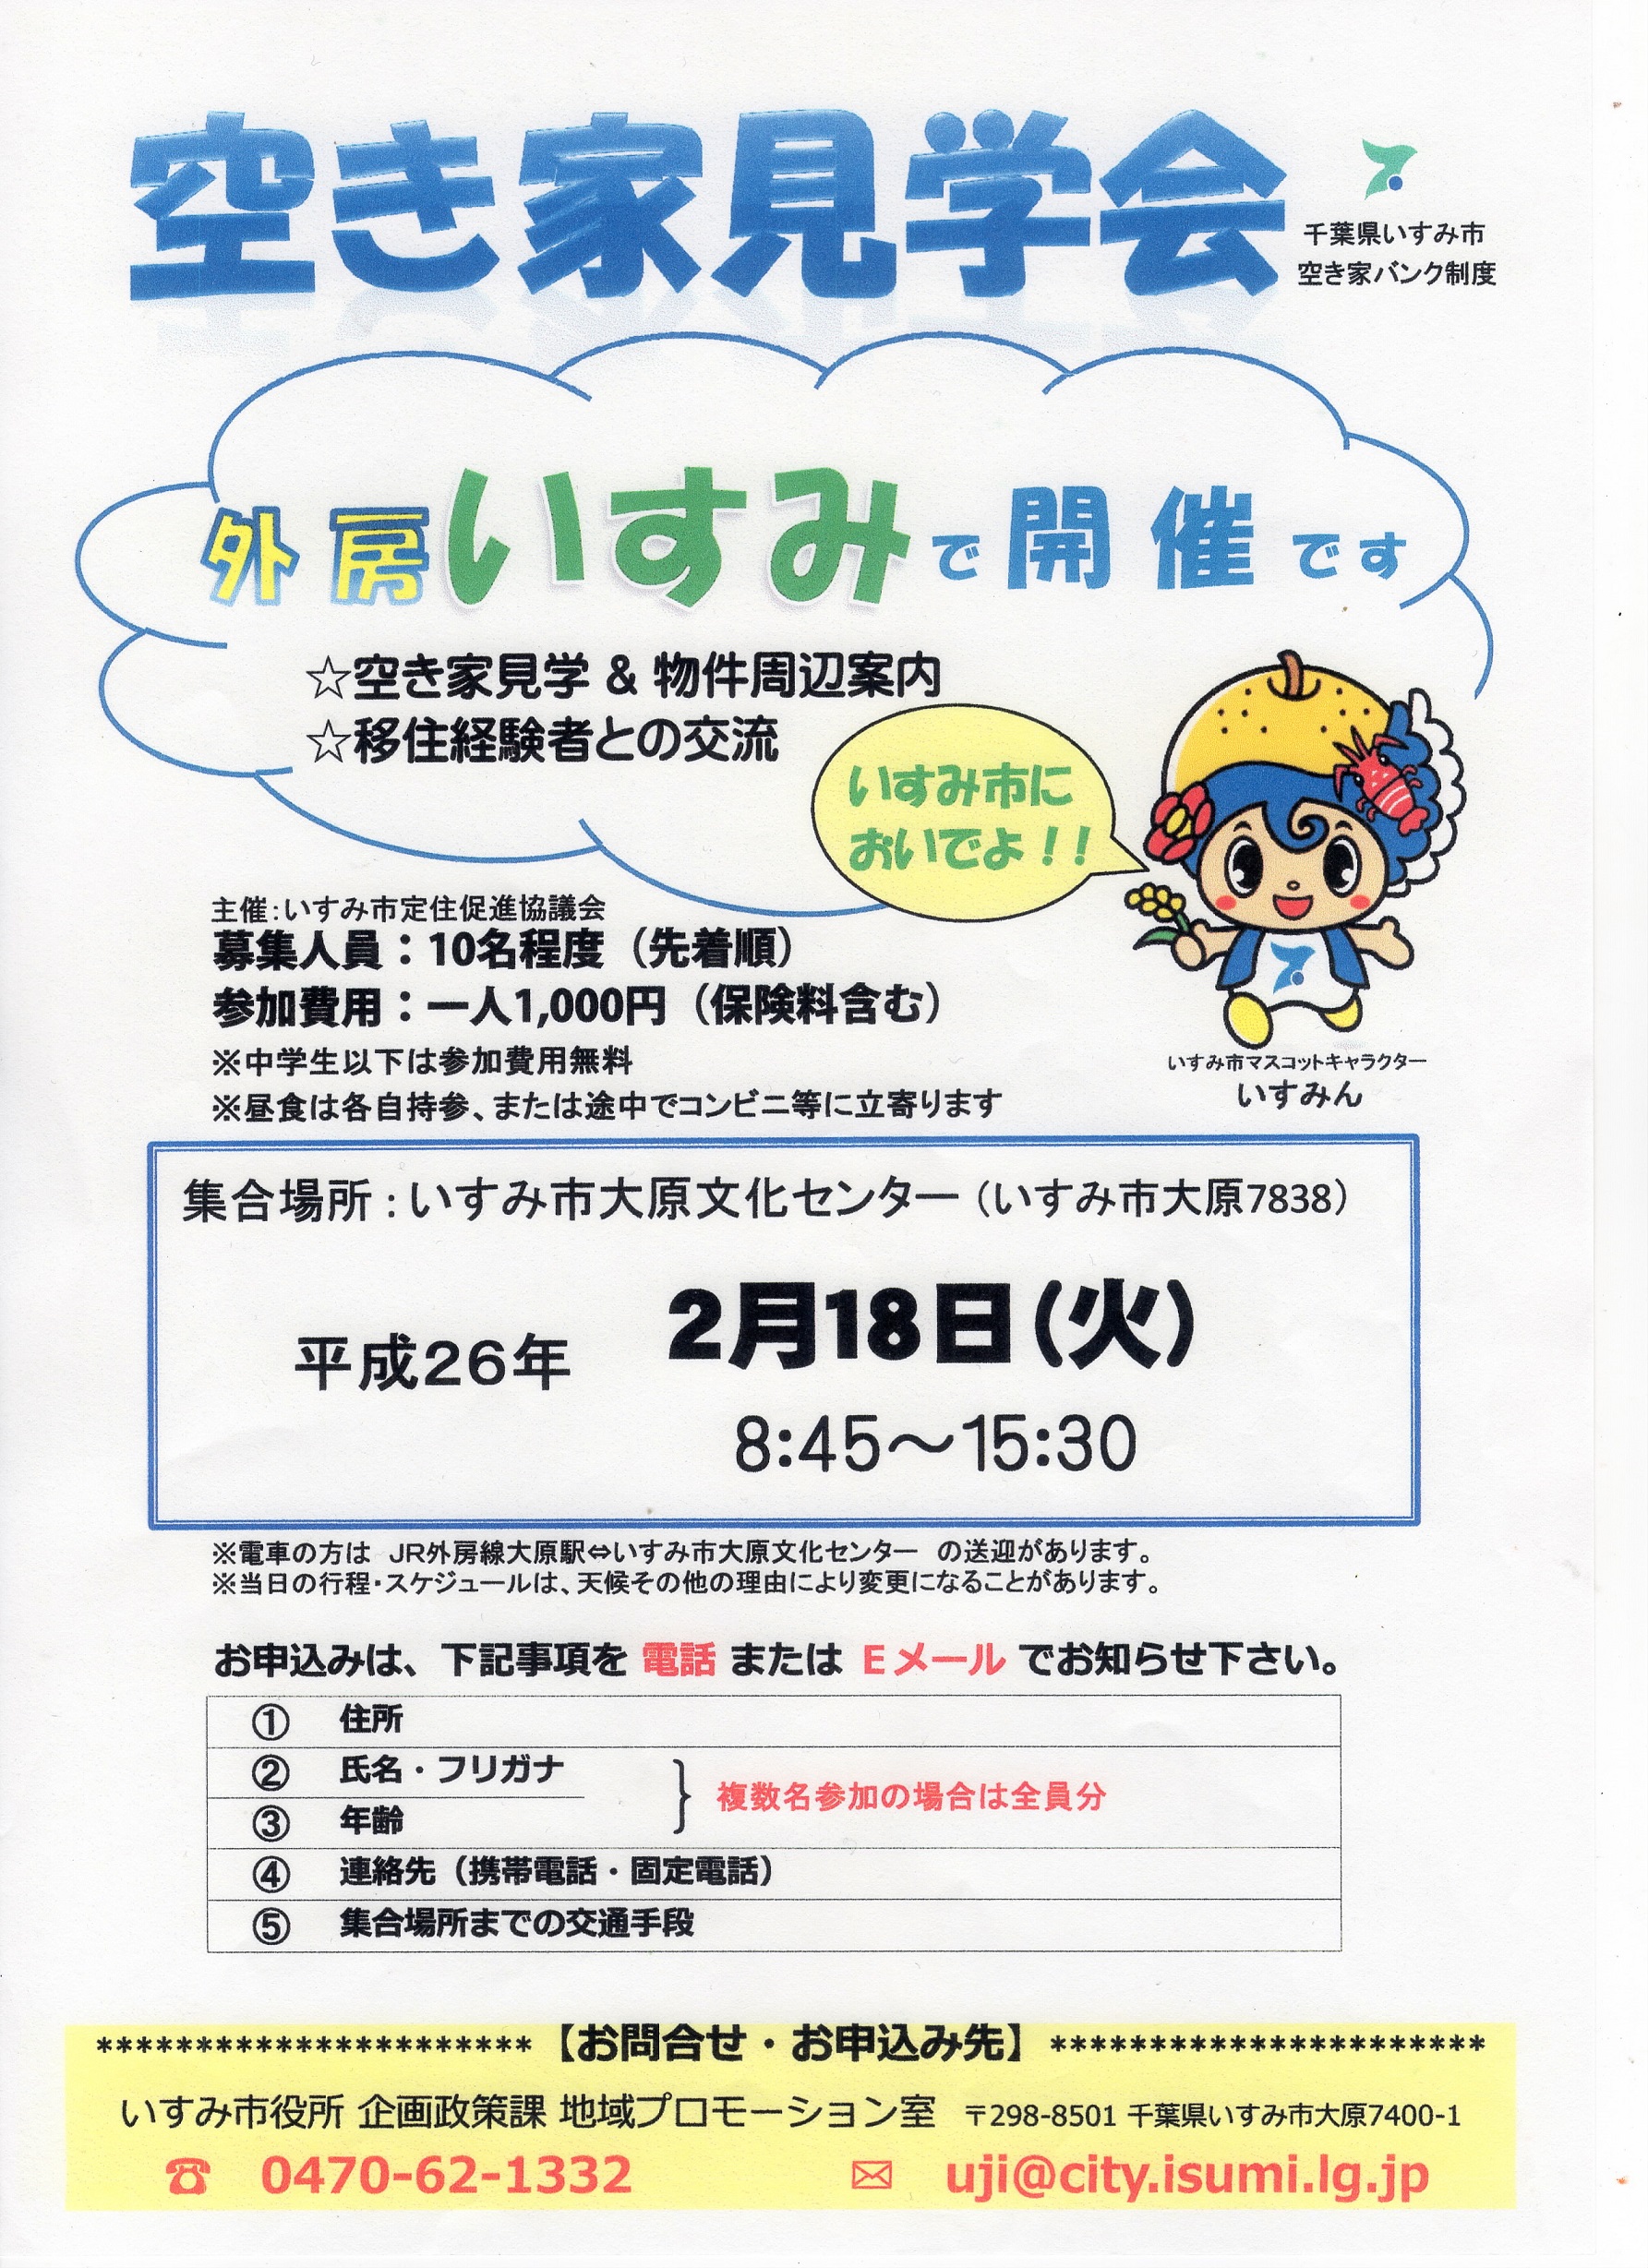 空き家見学会
千葉県いすみ市
空き家バンク制度
外房いすみで開催です
☆空き家見学 & 物件周辺案内
☆移住経験者との交流
いすみ市に
おいでよ！！
主催：いすみ市定住促進協議会
募集人員：10名程度（先着順）
参加費用：一人1,000円（保険料含む）
※中学生以下は参加費用無料
※昼食は各自持参、または途中でコンビニ等に立寄ります
いすみ市マスコットキャラクター
いすみん
集合場所：いすみ市大原文化センター（いすみ市大原7838）
平成26年
2月18日（火）
8:45～15:30
※電車の方は　JR外房線大原駅⇔いすみ市大原文化センター　の送迎があります。
※当日の行程・スケジュールは、天候その他の理由により変更になることがあります。
お申込みは、下記事項を 電話 または Eメール でお知らせ下さい。
① 住所
② 氏名・フリガナ
③ 年齢
｝ 複数名参加の場合は全員分
④ 連絡先（携帯電話・固定電話）
⑤ 集合場所までの交通手段
**********************【お問合せ・お申込み先】**********************
いすみ市役所 企画政策課 地域プロモーション室 〒298-8501 千葉県いすみ市大原7400-1
☎ 0470-62-1332 ✉ uji@city.isumi.lg.jp